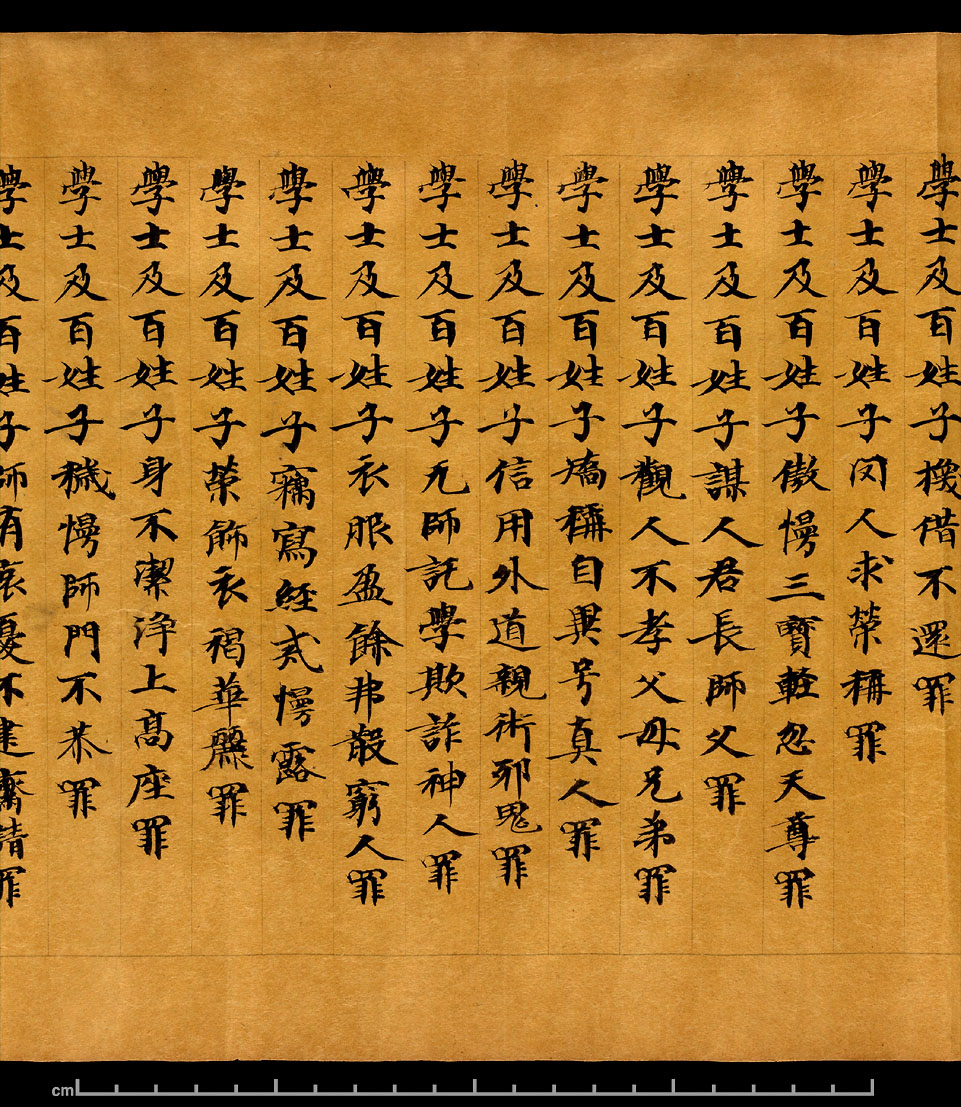 學士及百姓子換借不還罪
學士及百姓子因人求榮稱罪
學士及百姓子慠慢三寶輕忽天尊罪
學士及百姓子謀人君長師父罪
學士及百姓子觀人不孝父母兄弟罪
學士及百姓子矯稱自異号真人罪
學士及百姓子信用外道親術邪鬼罪
學士及百姓子无師託學欺詐神人罪
學士及百姓子衣服盈餘弗散窮人罪
學士及百姓子竊寫經戒慢露罪
學士及百姓子榮飾衣褐華麗罪
學士及百姓子身不潔淨上高座罪
學士及百姓子穢慢師門不恭罪
學士及百姓子師有哀憂不建齋請罪